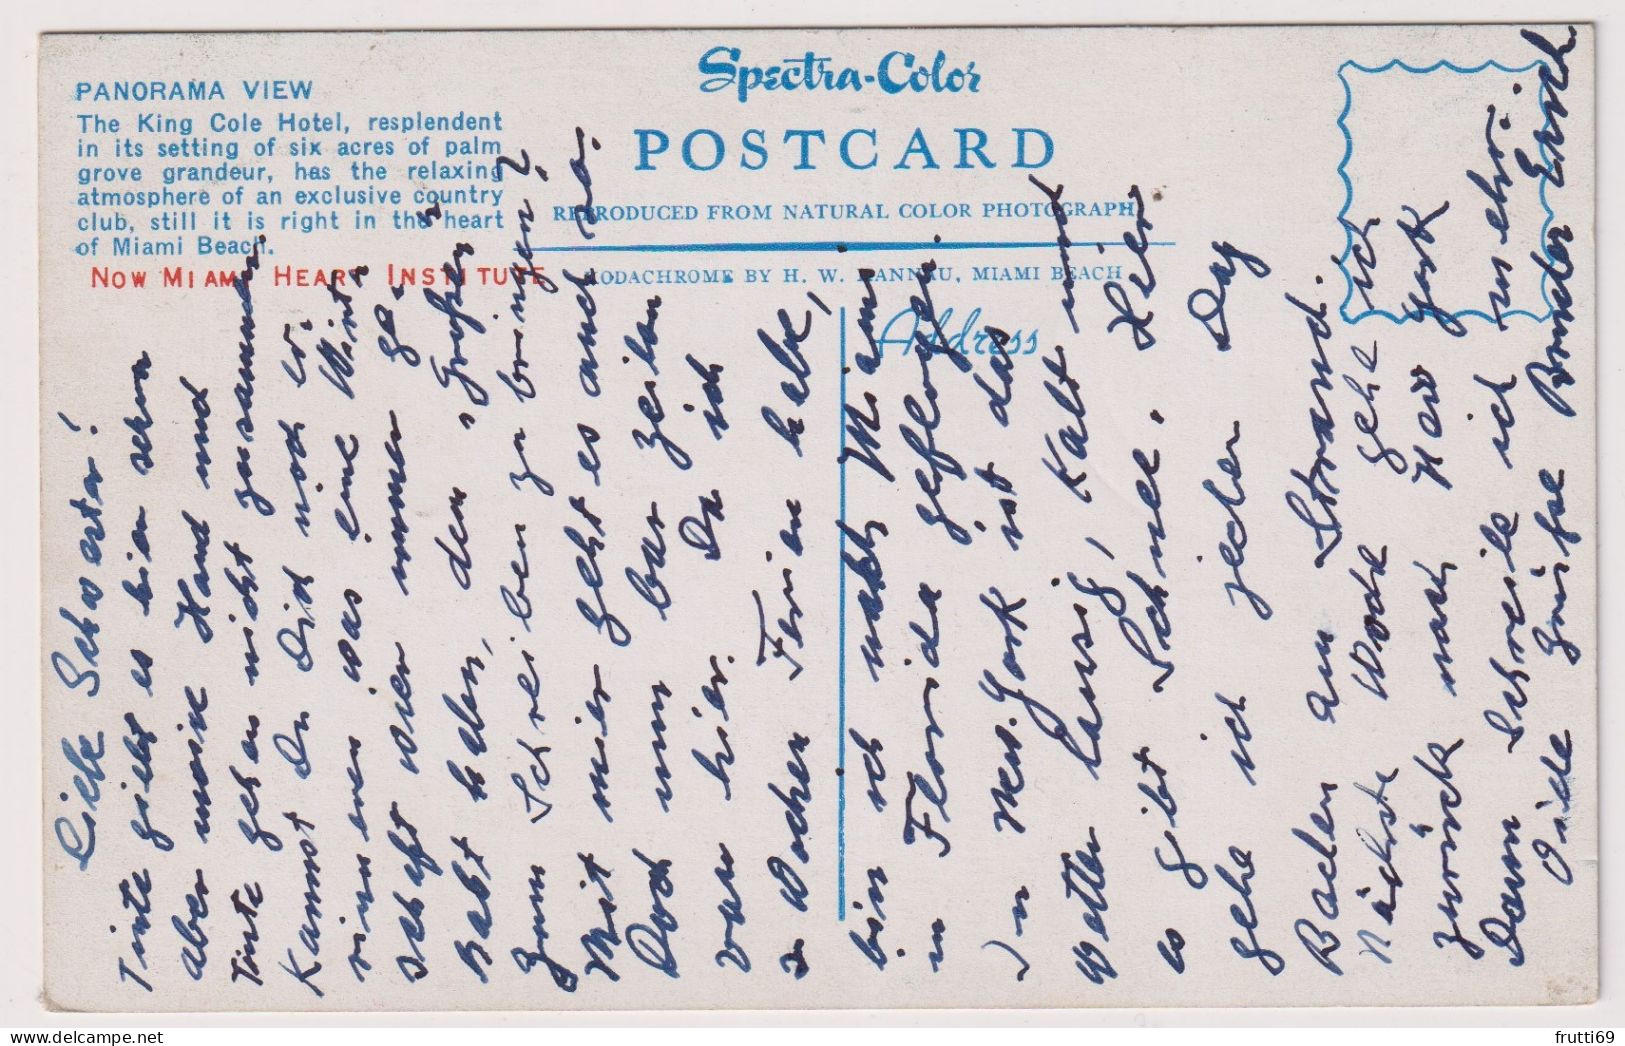 PANORAMA VIEW
The King Cole Hotel, resplendent
in its setting of six acres of palm
grove grandeur, has the relaxing
atmosphere of an exclusive country
club, still it is right in the heart
of Miami Beach.
NOW MIAMI HEART INSTITUTE
Spectra-Color
POSTCARD
REPRODUCED FROM NATURAL COLOR PHOTOGRAPH
KODACHROME BY H. W. HANNAU, MIAMI BEACH
Address
Liebe Schwester!
Tinte gibt es hier schon
aber meine Hand und
Tinte gehen nicht zusammen.
Kannst Du Dich noch er
innern was eine Wirt
schaft wir immer ge
habt haben, den "Groschen"
zum Schreiben zu bringen?
Mit mier geht es auch so.
Doch nun paar zeilen
von hier. Da ich
2 Wochen Ferien habe,
bin ich nach Miami
in Florida geflogen.
In New. York ist das
Wetter lausig, Kalt und
es gibt Schnee. Hier
gehe ich jeden Day
Baden am Strand.
Nächste Woche gehe ich
zurück nach New York
Dann Schreibe ich mehr.
Viele Grüße Bruder Erich
frutti69